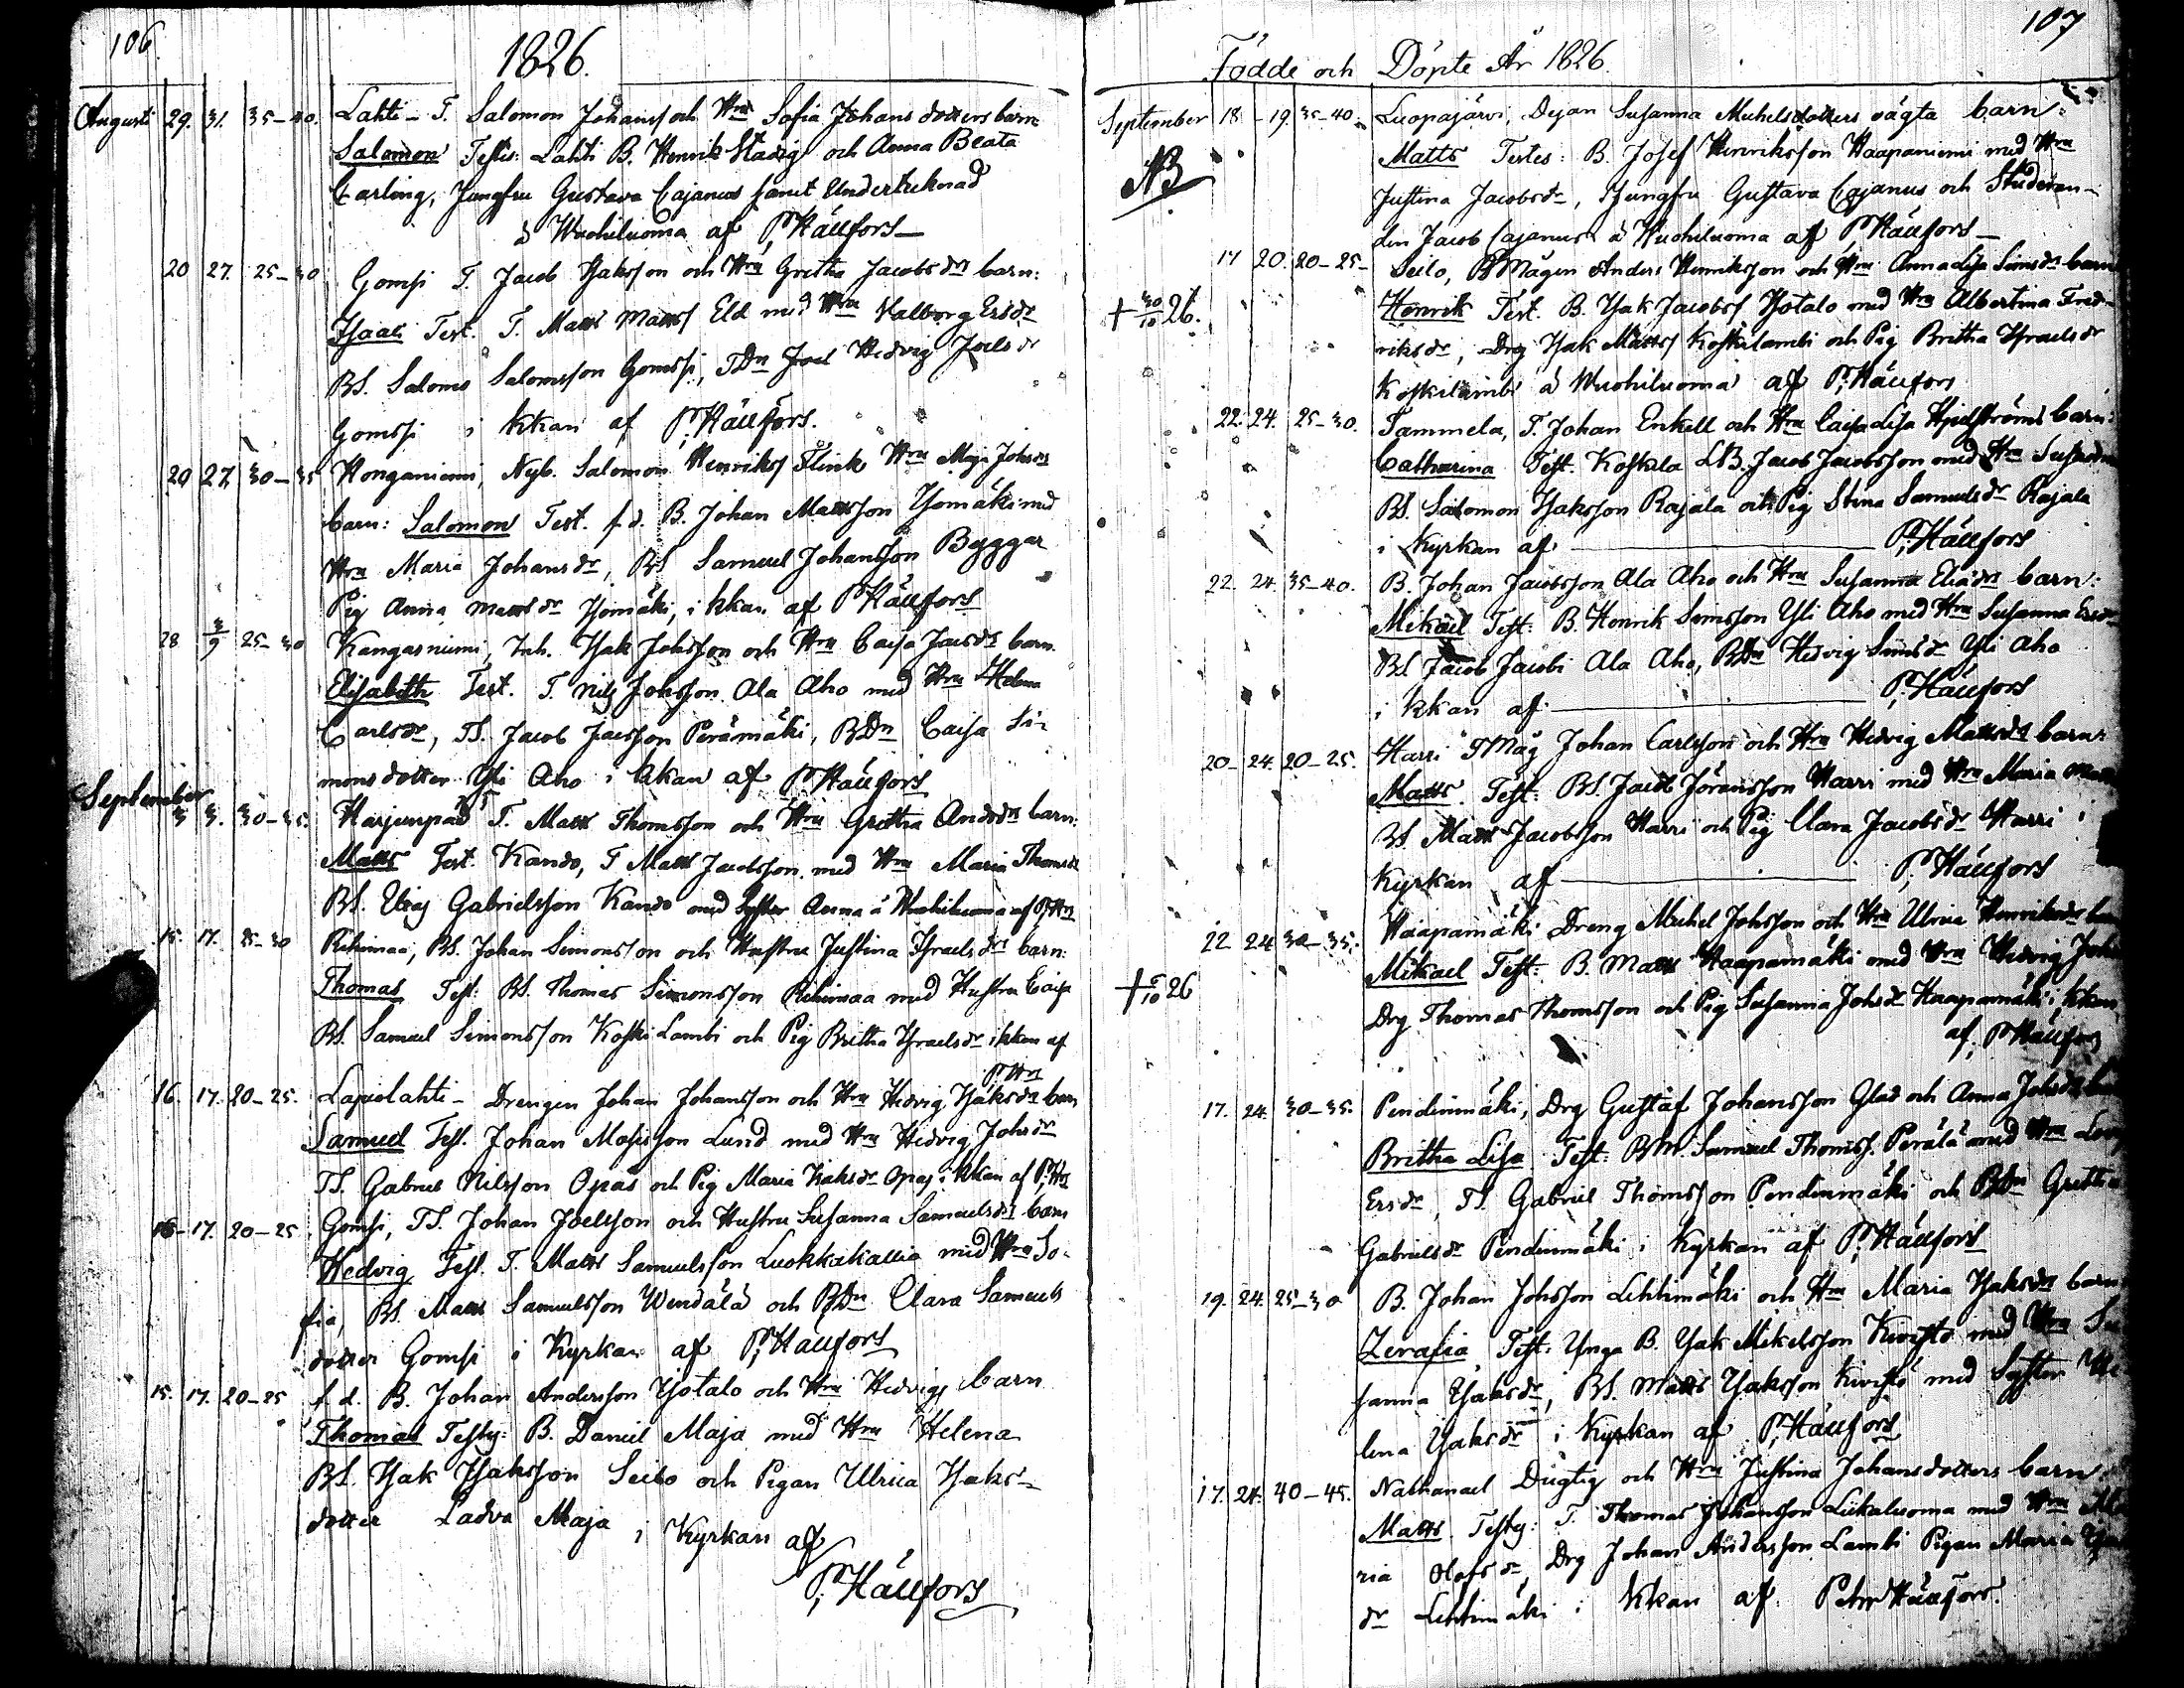 106
1826.
Augusti 29. 31. 35–40. Lahti – T. Salomon Johanss och Hru Sofia Johans dotters barn
Salomon Testes: Lahti B. Henrik Stadig och Anna Beata
Carling, Jungfru Gustava Cajanus samt Undertecknad
å Wuohiluoma af P. Hällfors
20 27. 25–30 Gomsi T. Jacob Isaksson och Hru Gretha Jacobs drs barn:
Isaac Test. T. Matts Matts Eld med Hru Valborg Ersdr
BS. Salomo Salomsson Gomssi, TDn Hedvig Joelsdr
Gomssi i kkan af P. Hällfors.
20 27. 30–35 Honganiemi, Nyb. Salomon Henrikss Flink Hru Maja Johsdrs
barn: Salomon Test. f.d. B. Johan Mattsson Isomäki med
Hru Maria Johansdr, BS Samuel Johansson Byggar
Pig Anna Mattsdr Isomäki, i kkan af P Hällfors
28 3/9 25–30 Kangasniemi, Inh. Isak Johsson och Hru Caisa Jacsdrs barn
Elisabeth Test. T. Nils Johsson Ala Aho med Hru Helena
Carlsdr, TS. Jacob Jacsson Perämäki, BDn Caisa Si-
monsdotter Yli Aho i kkan af P. Hällfors
September
3 3. 30–35. Harjunpää T. Matts Thomsson och Hru Gretha Andsdrs barn:
Matts Test. Kando, T Matts Jacobsson med Hru Maria Thomsdr
BS. Elias Gabrielsson Kando med Syster Anna å Wuohiluoma af P. Hrs
15. 17. 25–30 Rihimaa, BS. Johan Simonsson och Hustru Justina Israelsdrs barn:
Thomas Test: BS. Thomas Simonsson Rihimaa med Hustru Caisa
BS. Samuel Simonsson Koski Lambi och Pig Britha Israelsdr i kkan af
P. Hrs
16. 17. 20–25. Lapiolahti – Drengen Johan Johansson och Hru Hedvig Isaksdrs barn
Samuel Test. Johan Mosisson Lund med Hru Hedvig Johsdr
TS. Gabriel Nilsson Opas och Pig Maria Isaksdr Opas i kkan af P. Hrs
16– 17. 20–25 Gomsi, TS. Johan Joelsson och Hustru Susanna Samuelsdrs barn
Hedvig Test. T. Matts Samuelsson Luokkakallia med Hru So-
fia, BS. Matts Samuelsson Wendälä och BDn Clara Samuels
dotter Gomsi i Kyrkan af P. Hällfors
15. 17. 20–25 f.d. B. Johan Andersson Isotalo och Hru Hedvigs barn
Thomas Testes: B. Daniel Maja med Hru Helena
BS. Isak Isaksson Seilo och Pigan Ulrica Isaks-
dotter Ladva Maja i Kyrkan af
P. Hällfors
107
Födde och Döpte År 1826.
September 18 – 19. 35–40. Luopajärvi, Dejan Susanna Michelsdotters oägta barn:
NB Matts Testes: B. Josef Henriksson Haapaniemi med Hru
Justina Jacobsdr, Jungfru Gustava Cajanus och Studeran-
den Jacob Cajanus å Wuohiluoma af P. Hällfors
17 20. 20–25– Seilo, B Mågen Anders Henriksson och Hru Anna Lisa Simsdrs barn
+ 30/10 26. Henrik Test. B. Isak Jacobss Isotalo med Hru Albertina Fred-
riksdr, Drg Isak Matts Koskilambi och Pig Britha Israelsdr
Koskilambi å Wuohiluoma af P. Hällfors
22. 24. 25–30. Tammela, T. Johan Enkell och Hru Caisa Lisa Hjelströms barn:
Catharina Test. Koskela LB. Jacob Jacobsson med Hru Susanna
BS. Salomon Isaksson Rajala och Pig Stina Samuelsdr Rajala
i Kyrkan af P. Hällfors
22. 24. 35–40. B. Johan Jacobsson Ala Aho och Hru Susanna Eliædrs barn:
Mikael Test: B. Henrik Simsson Yli Aho med Hru Susanna Ersdr
BS. Jacob Jacobs Ala Aho, BDn Hedvig Simsdr Yli Aho
i kkan af P. Hällfors
20– 24. 20–25. Harri T Måg Johan Carlsson och Hru Hedvig Mattsdrs barn:
Matts. Test: BS. Jacob Jöransson Harri med Hru Maria Matts
BS. Matts Jacobsson Harri och Pig Clara Jacobsdr Harri i
Kyrkan af P. Hällfors
22 24 30–35. Haapamäki Dreng Michel Johsson och Hru Ulrica Henriksdrs barn
+ 5/10 26 Mikael Test: B. Matts Haapamäki med Hru Hedvig Johs
Drg Thomas Thomsson och Pig Susanna Johsdr Haapamäki, i kkan
af P Hällfors
17. 24. 30–35. Pendinmäki, Drg Gustaf Johansson Glad och Anna Johsdrs barn
Britha Lisa Test: BM. Samuel Thomss. Perälä med Hru
Ersdr, TS. Gabriel Thomsson Pendinmäki och BDn Gretha
Gabrielsdr Pendinmäki i Kyrkan af P. Hällfors
19. 24. 25–30 B. Johan Johsson Lehtimäki och Hru Maria Isaksdrs barn
Zerafia Test. Unga B. Isak Mikelsson Kivistö med Hru Su
sanna Isaksdr, BS. Matts Isaksson Kivistö med Syster He
lena Isaksdr i Kyrkan af P. Hällfors
17. 24. 40–45. Nathanael Dugtig och Hru Justina Johansdotters barn
Matts. Testes: T. Thomas Johansson Liikaluoma med Hru Ma
ria Olofsdr, Drg Johan Andersson Lambi Pigan Maria Isaks
dr Lehtimäki i kkan af Petter Hällfors.